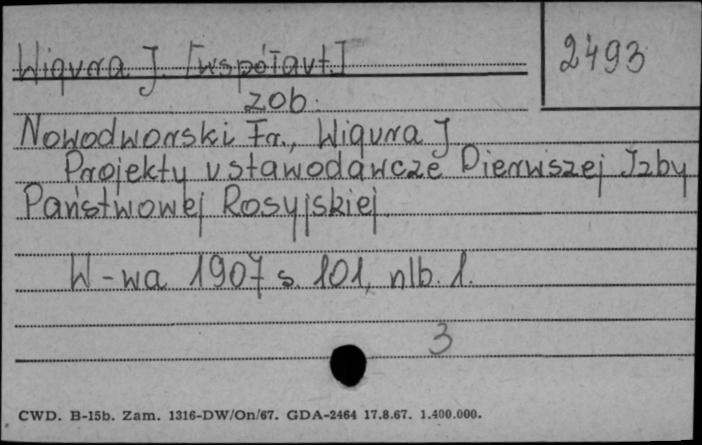 Wigura J. [współaut.]
2493
zob.
Nowodworski Fr., Wigura J
Projekty ustawodawcze Pierwszej Izby
Państwowej Rosyjskiej.
W-wa 1907 s. 101, nlb. 1.
3
CWD. B-15b. Zam. 1316-DW/On/67. GDA-2464 17.8.67. 1.400.000.